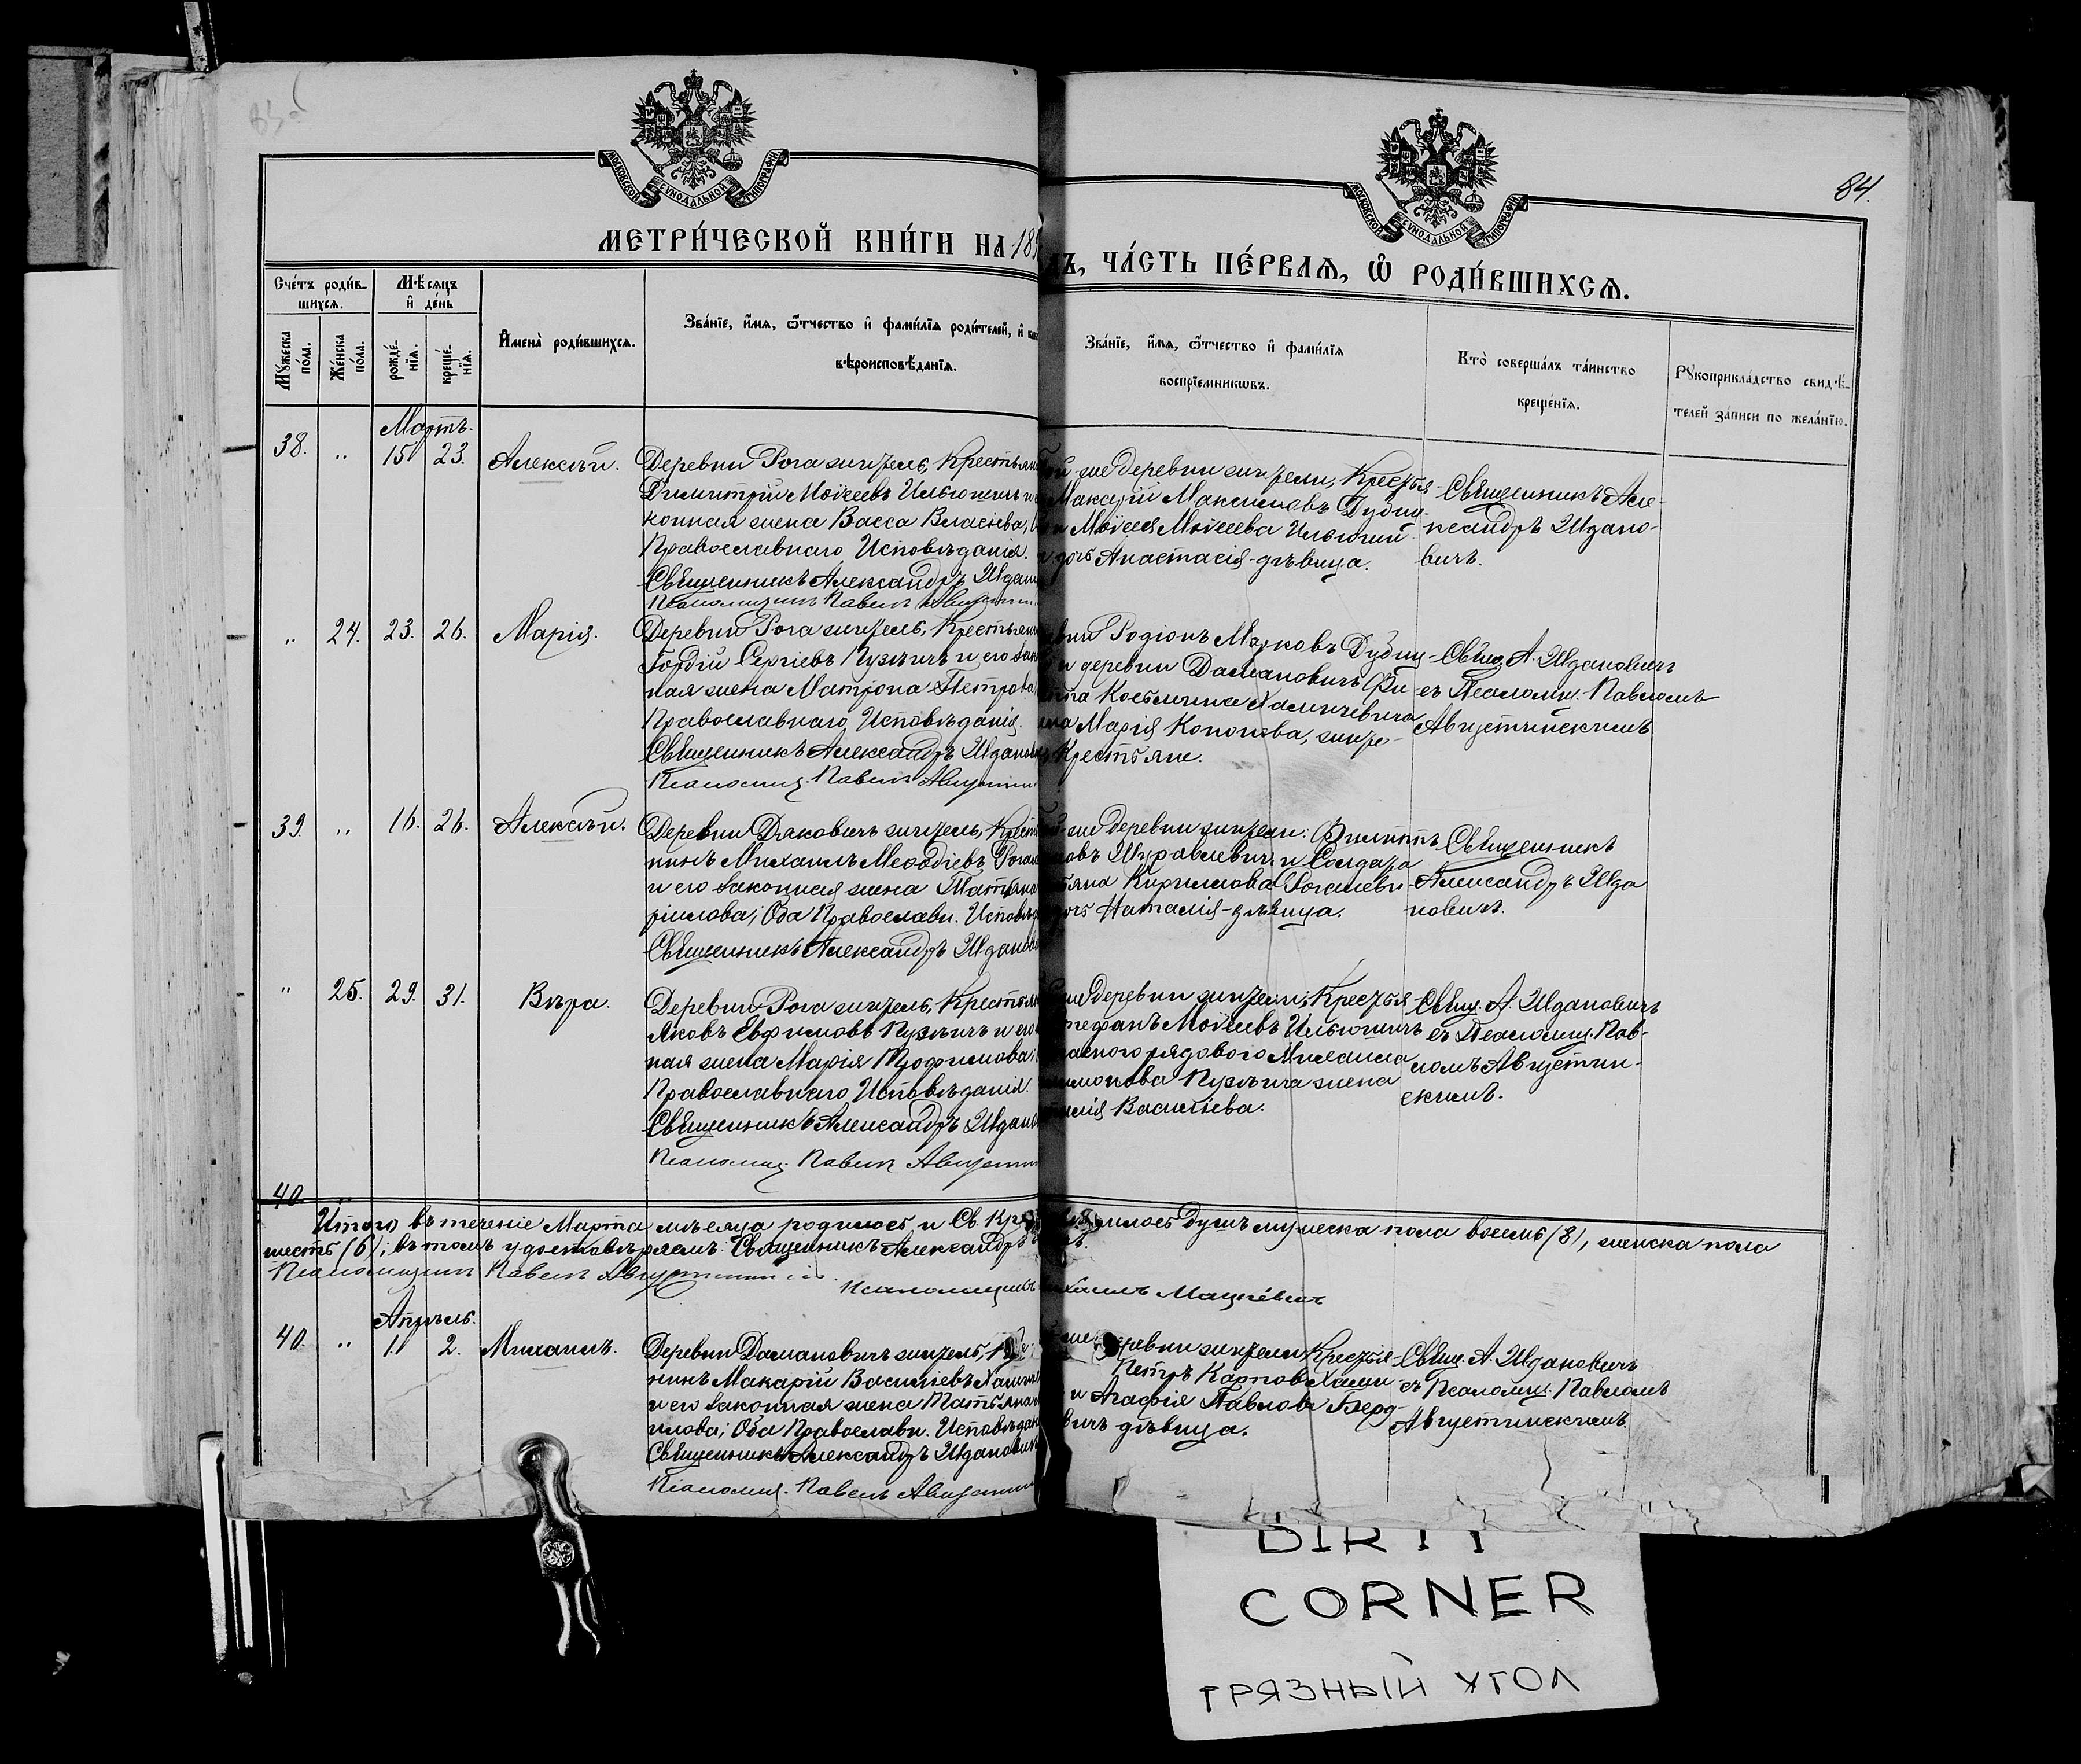 84.
МОСКОВСКОЙ СѴНОДАЛЬНОЙ ТИПОГРАФІИ
МОСКОВСКОЙ СѴНОДАЛЬНОЙ ТИПОГРАФІИ
МЕТРИ́ЧЕСКОЙ КНИ́ГИ НА 189
ЧА́СТЬ ПЕ́РВАѦ, Ѽ РОДИ́ВШИХСѦ.
Сче́тъ роди́в-
шихсѧ.
Мѣсѧцъ
и҆ де́нь
Мꙋжеска
по́ла.
Же́нска
по́ла.
рожде́-
нїѧ.
креще́-
нїѧ.
И҆мена̀ роди́вшихсѧ.
Зва́нїе, и҆́мѧ, ѻ҆́тчество и҆ фами́лїѧ роди́телей, и҆
вѣроисповѣданїѧ.
Зва́нїе, и҆́мѧ, ѻ҆́тчество и҆ фами́лїѧ
воспрїемникѡвъ.
Кто̀ соверша́лъ та́инство
креще́нїѧ.
Рꙋкоприкла́дство свидѣ́-
телей за́писи по жела́нїю.
Мартъ.
38. " 15 23. Алексѣй.
Деревни Рога жител�, Крестьян
Димитрій Моѵсеевъ Ильюшичъ и
конная жена Васса Власіева,
Православнаго Исповѣданія.
Священникъ Александръ Ждан
Псаломщикъ Павелъ Августин
же деревни жители, Крестья-
Макарій Максимовъ Дубиц-
и Моѵсея Моѵсеева Ильюши
дочь Анастасія-дѣвица.
Священникъ Але-
ксандръ Ждано-
вичъ.
" 24. 23. 26. Марія.
Деревни Рога житель, Крестьян
Гордій Сергіевъ Пузѣичъ и его зак
ная жена Матрона Петрова
Православнаго Исповѣданія.
Священникъ Александръ Жданов
Псаломщ. Павелъ Августин
Родіонъ Марковъ Дубиц-
и деревни Дамановичъ Фи
Косьмича Хаминевича
Марія Кононова, жите-
Крестьяне.
Свящ. А. Ждановичъ
съ Псаломщ. Павломъ
Августинскимъ
39. " 16. 26. Алексѣй.
Деревни Дяковичъ житель, Крест
нинъ Михаилъ Меѳодіевъ Рогал
и его законная жена Татьяна
ріилова; Оба Православн. Исповѣд
Священникъ Александръ Жданов
же деревни жители: Филиппъ
Журавлевич и Солдата
Кириллова Рогалеви
дочь Наталія-дѣвица.
Священникъ
Александръ Жда
новичъ.
" 25. 29. 31. Вѣра.
Деревни Рога житель, Крестьян
Яковъ Евфимовъ Пузѣичъ и его
ная жена Марія Трофимова;
Православнаго Исповѣданія.
Священникъ Александръ Ждан
Псаломщ. Павелъ Августин
же деревни жители; Крестья-
Стефанъ Моѵсеевъ Ильюшичъ
рядового Михаила
Пузѣича жена
Васильева.
Свящ. А. Ждановичъ
съ Псаломщ. Пав-
ломъ Августин-
скимъ.
40
Итого въ теченіе Марта мѣсяца родилось и Св. Кр душъ мужеска пола восемь (8), женска пола
шесть (6); въ томъ удостовѣряемъ: Священникъ Александръ
Псаломщикъ Павелъ Августинскій.
Псаломщикъ Михаилъ Мацкевичъ
Апрѣль.
40. " 1 2. Михаилъ.
Деревни Дамановичъ житель,
нинъ Макарій Васильевъ Хамин
и его законная жена Татьяна
илова; Оба Православн. Исповѣдан
Священникъ Александръ Жданович
Псаломщ. Павелъ Августин
деревни жители Крестья-
Петръ Карповъ Хами
и Агафія Павлова Берд-
вичъ дѣвица.
Свящ. А. Ждановичъ
съ Псаломщ. Павломъ
Августинскимъ
DIRTY
CORNER
ГРЯЗНЫЙ УГОЛ